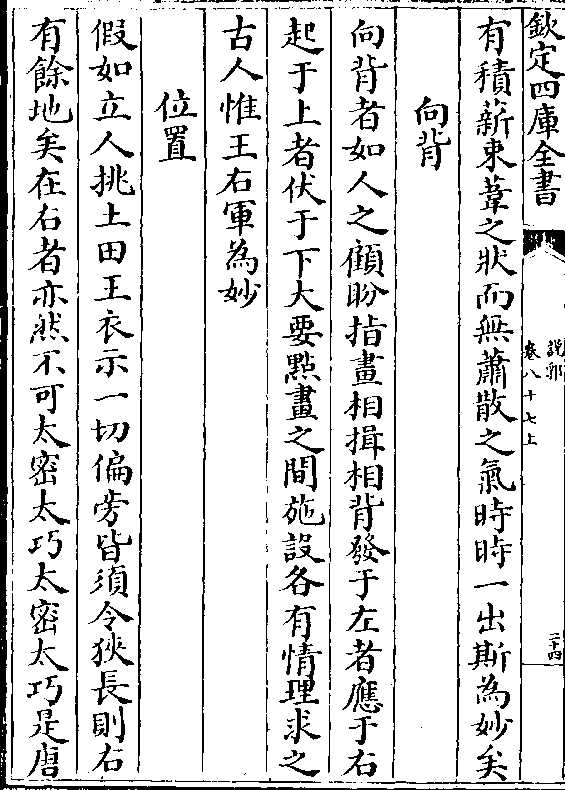 欽定四庫全書
說郛
卷八十七上
二十四
有積薪束葦之狀而無蕭散之氣時時一出斯為妙矣
向背
向背者如人之顧盼指畫相揖相背發于左者應于右
起于上者伏于下大要點畫之間施設各有情理求之
古人惟王右軍為妙
位置
假如立人挑土田王衣示一切偏旁皆須令狹長則右
有餘地矣在右者亦然不可太密太巧太密太巧是唐